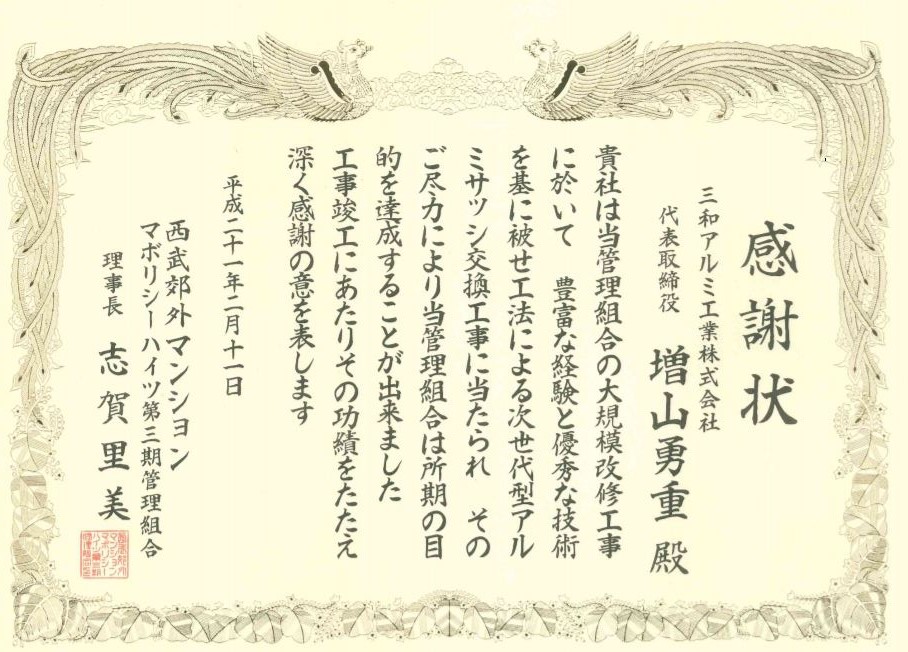 感謝状
三和アルミ工業株式会社
代表取締役 増山勇重 殿
貴社は当管理組合の大規模改修工事
に於いて 豊富な経験と優秀な技術
を基に被せ工法による次世代型アル
ミサッシ交換工事に当たられ その
ご尽力により当管理組合は所期の目
的を達成することが出来ました
工事竣工にあたりその功績をたたえ
深く感謝の意を表します
平成二十一年二月十一日
西武郊外マンション
マボリシーハイツ第三期管理組合
理事長 志賀里美